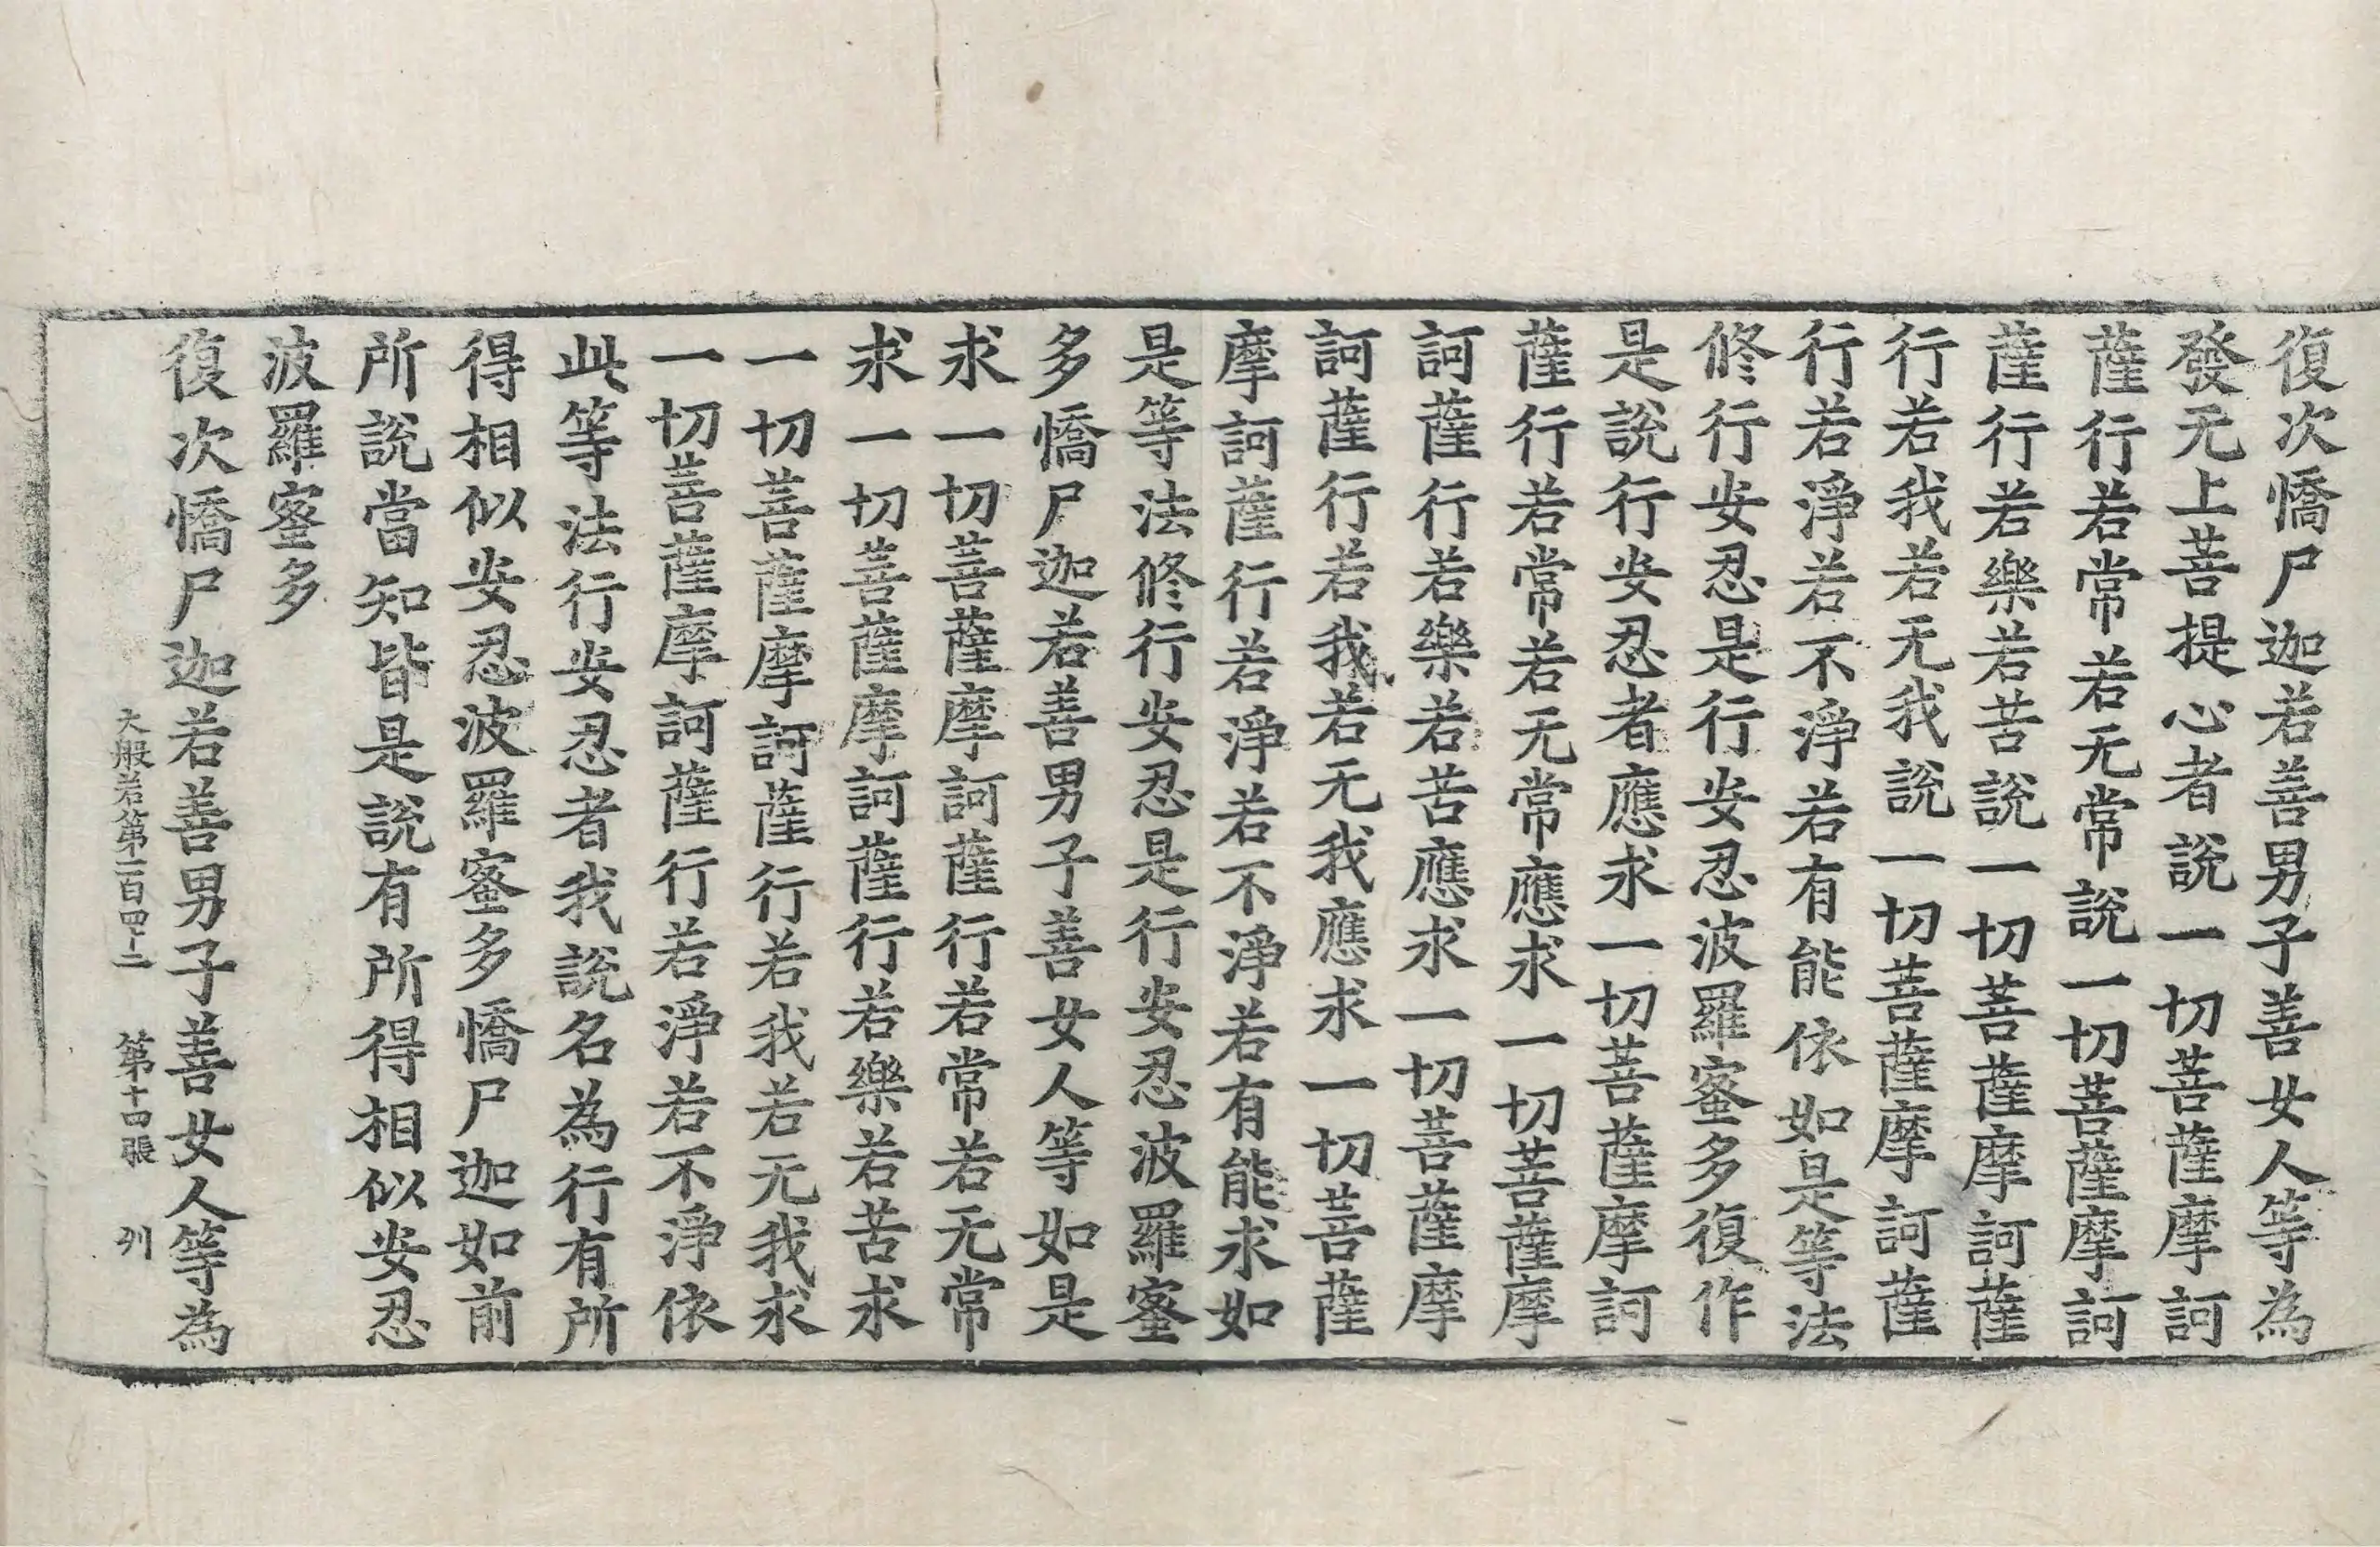 復次憍尸迦若善男子善女人等為
發无上菩提心者說一切菩薩摩訶
薩行若常若无常說一切菩薩摩訶
薩行若樂若苦說一切菩薩摩訶薩
行若我若无我說一切菩薩摩訶薩
行若淨若不淨若有能依如是等法
修行安忍是行安忍波羅蜜多復作
是說行安忍者應求一切菩薩摩訶
薩行若常若无常應求一切菩薩摩
訶薩行若樂若苦應求一切菩薩摩
訶薩行若我若无我應求一切菩薩
摩訶薩行若淨若不淨若有能求如
是等法修行安忍是行安忍波羅蜜
多憍尸迦若善男子善女人等如是
求一切菩薩摩訶薩行若常若无常
求一切菩薩摩訶薩行若樂若苦求
一切菩薩摩訶薩行若我若无我求
一切菩薩摩訶薩行若淨若不淨依
此等法行安忍者我說名為行有所
得相似安忍波羅蜜多憍尸迦如前
所說當知皆是說有所得相似安忍
波羅蜜多
復次憍尸迦若善男子善女人等為
大般若第一百四十二 第十四張 列